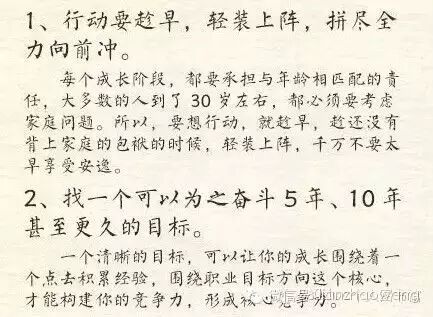 1、行动要趁早，轻装上阵，拼尽全
力向前冲。
每个成长阶段，都要承担与年龄相匹配的责
任，大多数的人到了30岁左右，都必须要考虑
家庭问题。所以，要想行动，就趁早，趁还没有
背上家庭的包袱的时候，轻装上阵，千万不要太
早享受安逸。
2、找一个可以为之奋斗5年、10年
甚至更久的目标。
一个清晰的目标，可以让你的成长围绕着一
个点去积累经验，围绕职业目标方向这个核心，
才能构建你的竞争力，形成核心竞争力。